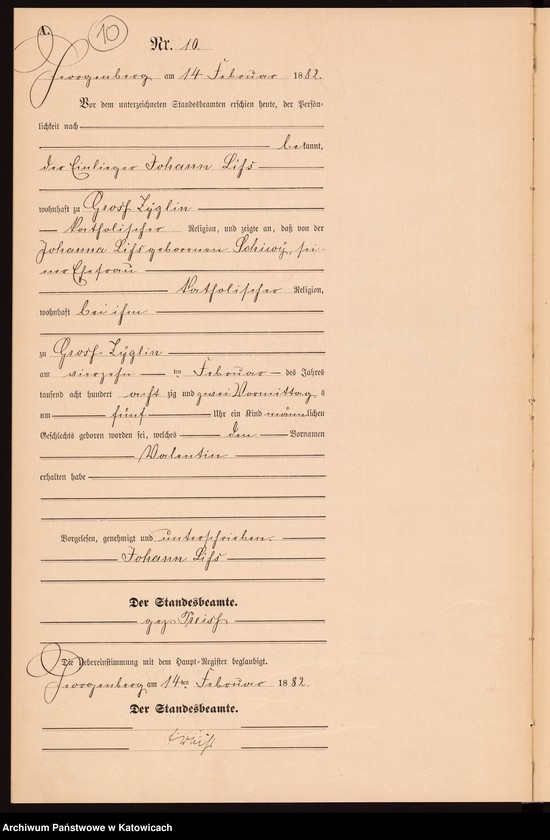 A.
10
Nr. 10.
Georgenberg am 14 Februar 1882.
Vor dem unterzeichneten Standesbeamten erschien heute, der Persön-
lichkeit nach
bekannt,
der Einlieger Johann Liss
wohnhaft zu Gross Zyglin
katholischer Religion, und zeigte an, daß von der
Johanna Liss geborenen Schiwy, sei-
ner Ehefrau
katholischer Religion,
wohnhaft bei ihm
zu Gross-Zyglin
am vierzehn ten Februar des Jahres
tausend acht hundert acht zig und zwei Vormittags
um fünf Uhr ein Kind männlichen
Geschlechts geboren worden sei, welches den Vornamen
Valentin
erhalten habe
Vorgelesen, genehmigt und unterschrieben.
Johann Liss
Der Standesbeamte.
gez. Preiss
Die Uebereinstimmung mit dem Haupt-Register beglaubigt.
Georgenberg am 14ten Februar 1882
Der Standesbeamte.
Preiss
Archiwum Państwowe w Katowicach